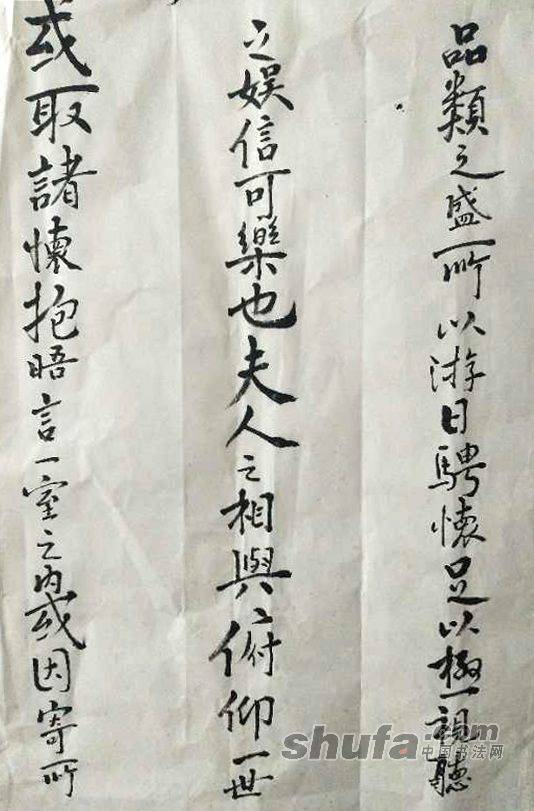 品類之盛所以游目騁懷足以極視聽
之娛信可樂也夫人之相與俯仰一世
或取諸懷抱晤言一室之內或因寄所
shufa.com
中国书法网